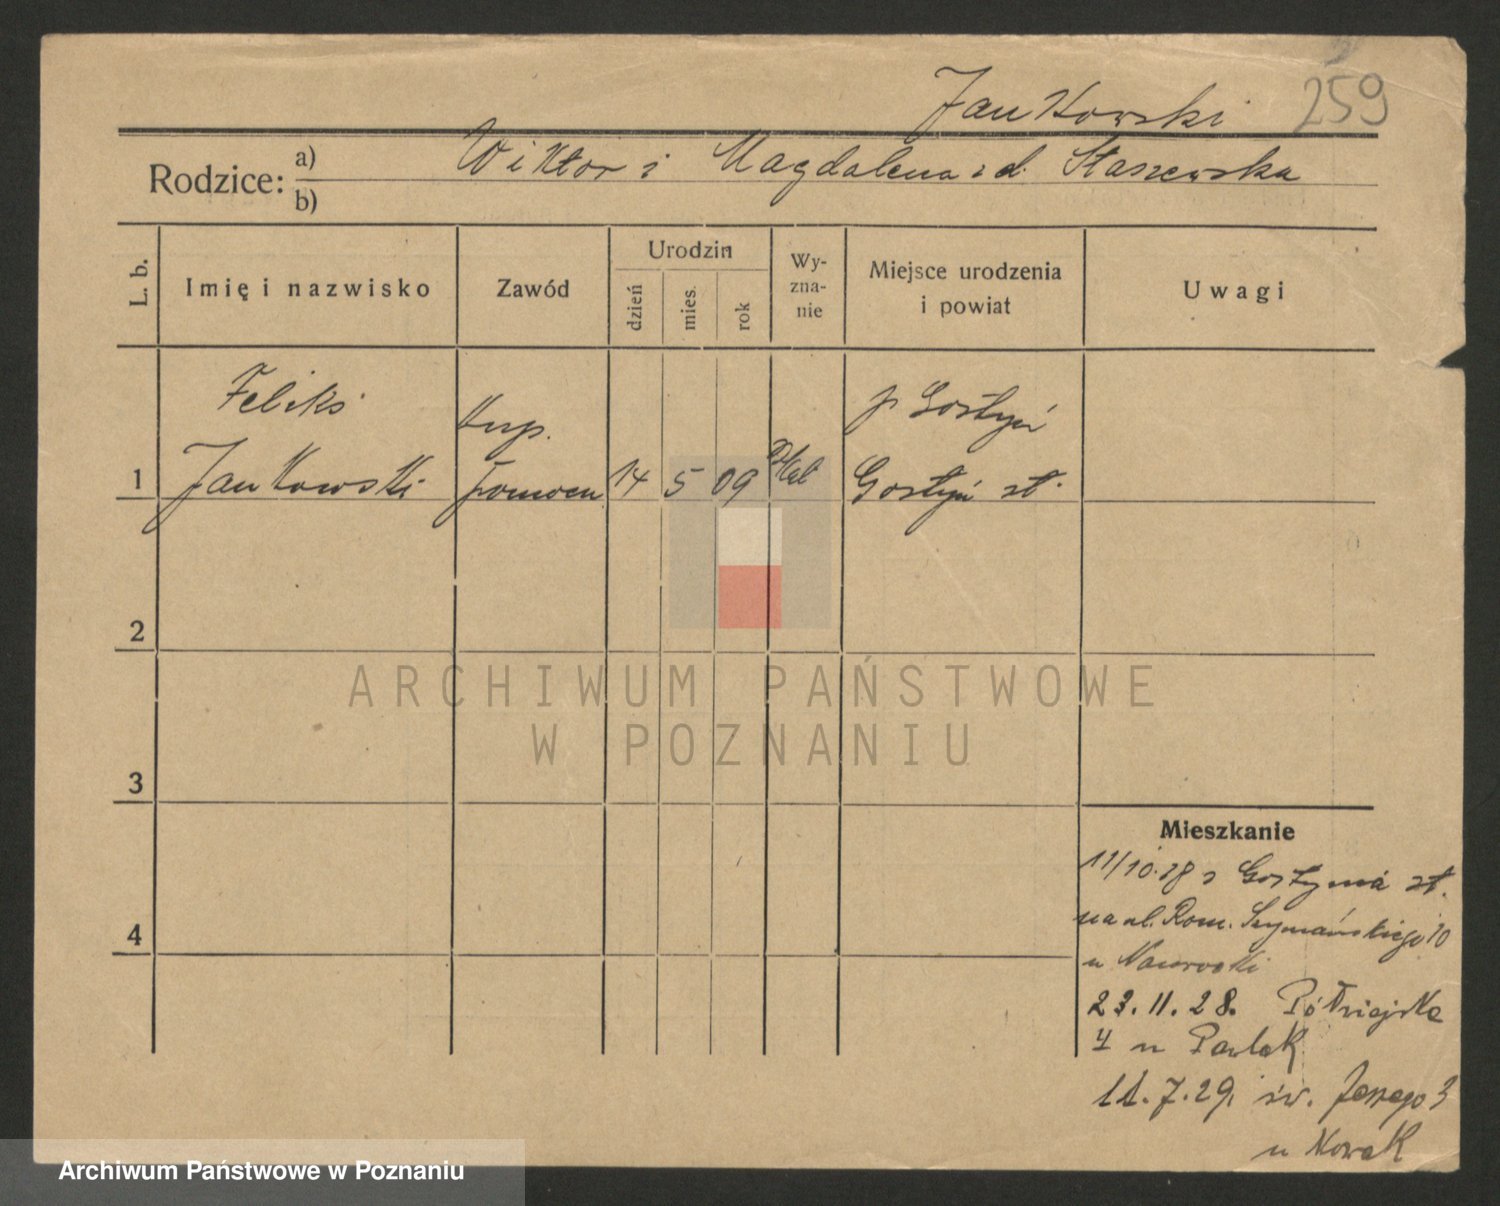 Jankowski 259
Rodzice: a) Wiktor i Magdalena z d. Staszewska
b)
L. b. Imię i nazwisko Zawód Urodzin dzień mies. rok Wyznanie Miejsce urodzenia i powiat Uwagi
Feliks kup. p Gostyń
1 Jankowski pomocn 14 5 09 rzkat Gostyń st.
2
ARCHIWUM PAŃSTWOWE
W POZNANIU
3
Mieszkanie
11/10.28 z Gostynia st.
4 na ul. Rom. Szymańskiego 10
u Nawrocki
23.11.28. Półwiejska
4 u Pawlak
11.7.29. św. Jerzego 3
u Nowak
Archiwum Państwowe w Poznaniu